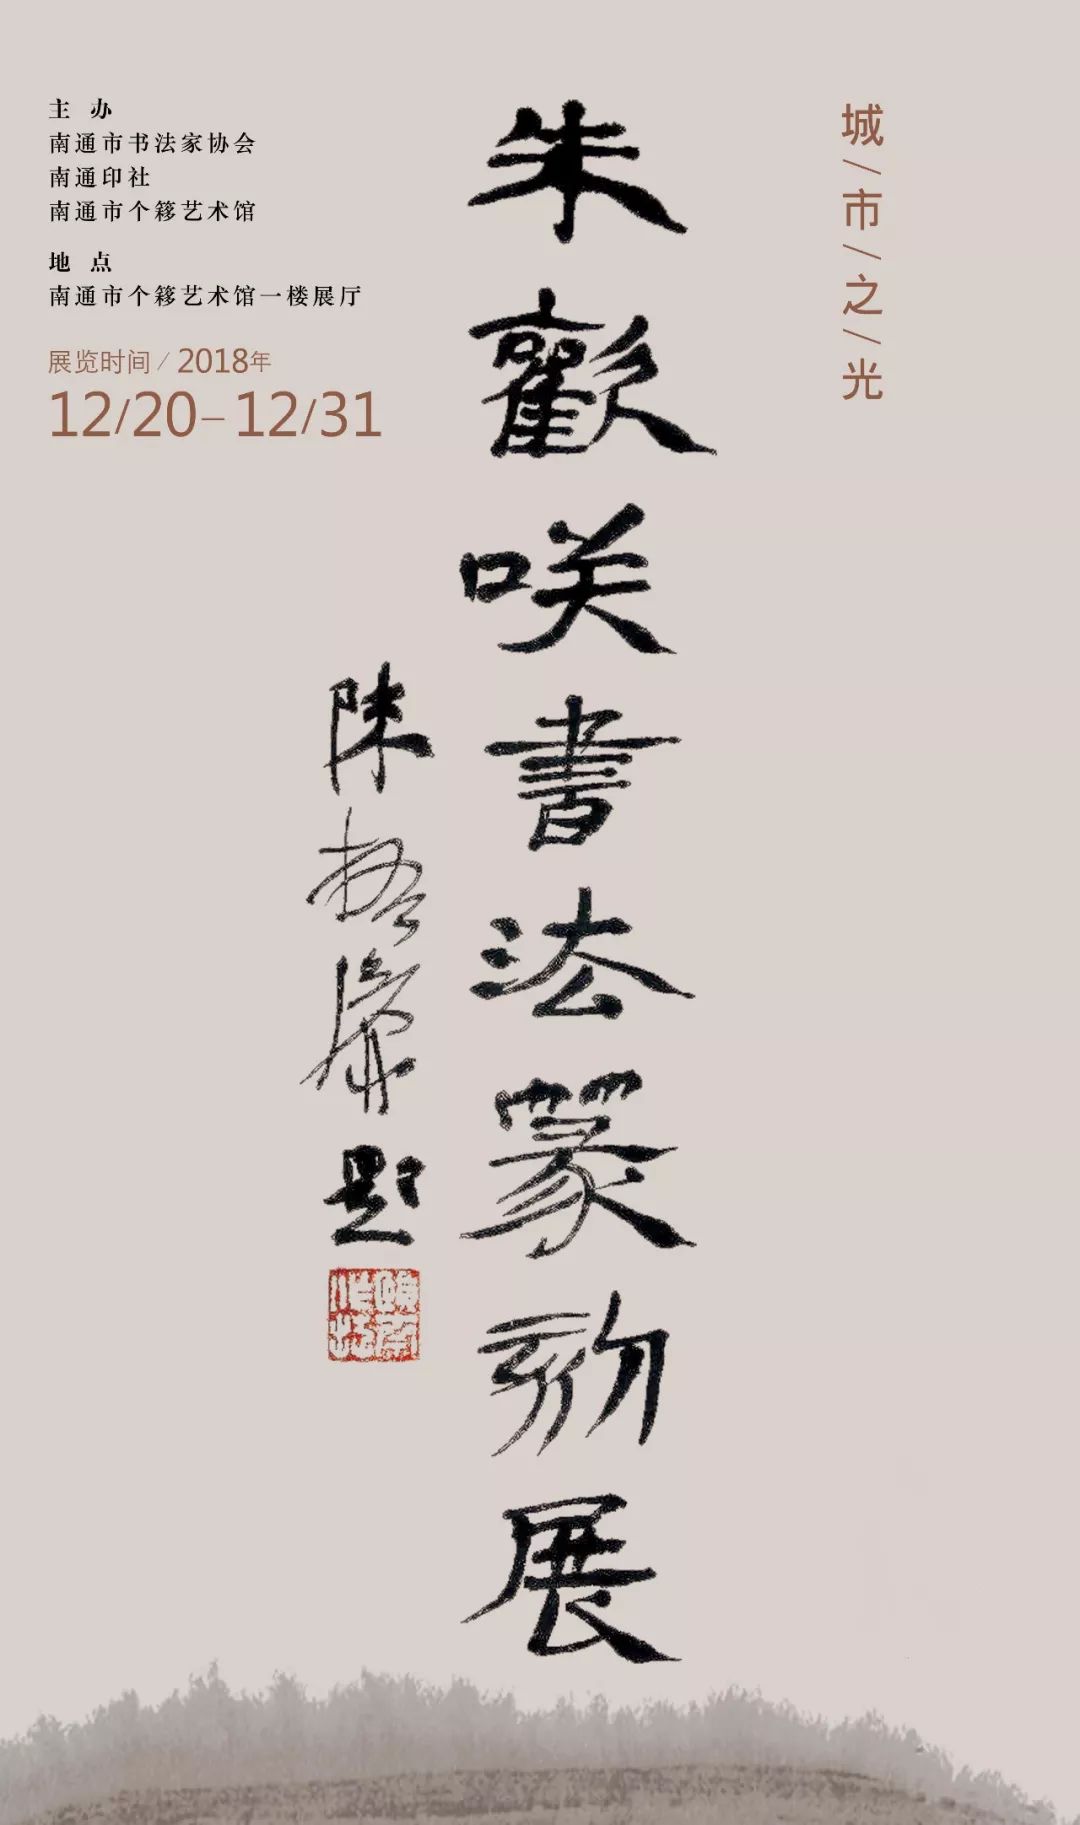 城/市/之/光
朱歡咲書法篆刻展
陳
題
主 办
南通市书法家协会
南通印社
南通市个簃艺术馆
地 点
南通市个簃艺术馆一楼展厅
展览时间/2018年
12/20-12/31